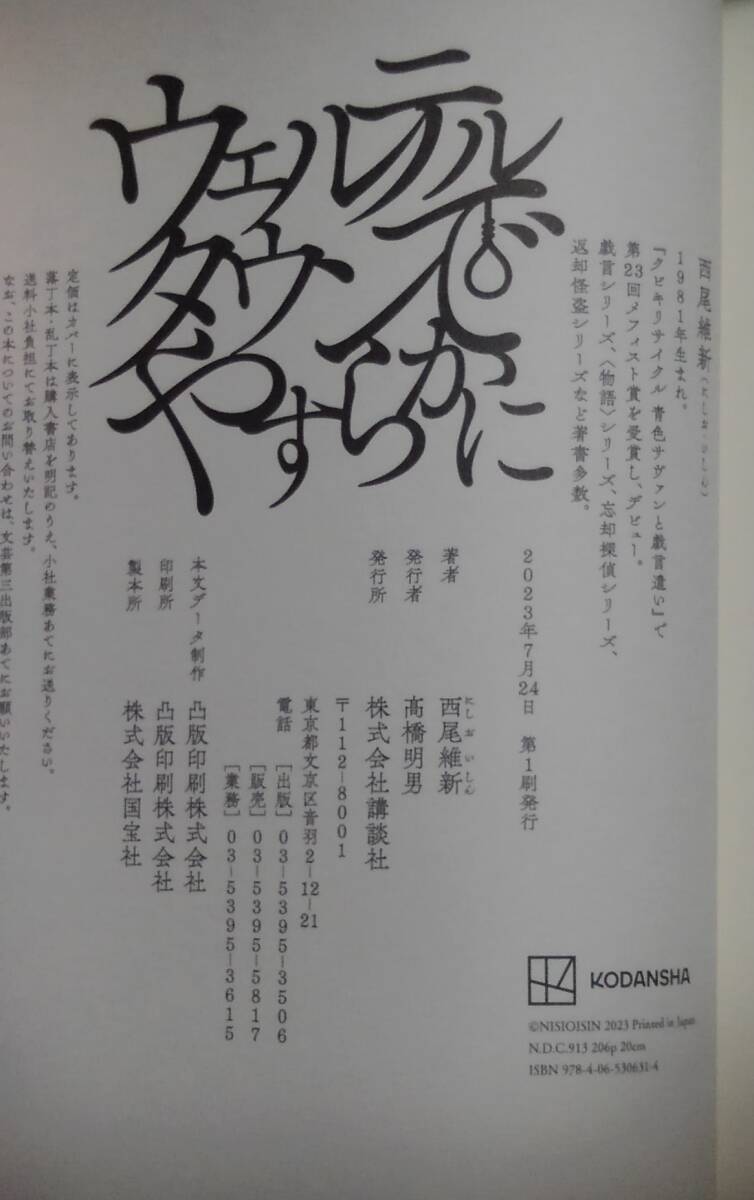 ウェルテルタウンでやすらかに
西尾維新（にしお・いしん）
1981年生まれ。
『クビキリサイクル 青色サヴァンと戯言遣い』で
第23回メフィスト賞を受賞し、デビュー。
戯言シリーズ、〈物語〉シリーズ、忘却探偵シリーズ、
返却怪盗シリーズなど著書多数。
2023年7月24日 第1刷発行
著者 西尾維新
にしおいしん
発行者 髙橋明男
発行所 株式会社講談社
〒112-8001
東京都文京区音羽2-12-21
電話 ［出版］03-5395-3506
［販売］03-5395-5817
［業務］03-5395-3615
本文データ制作 凸版印刷株式会社
印刷所 凸版印刷株式会社
製本所 株式会社国宝社
定価はカバーに表示してあります。
落丁本・乱丁本は購入書店を明記のうえ、小社業務あてにお送りください。
送料小社負担にてお取り替えいたします。
なお、この本についてのお問い合わせは、文芸第三出版部あてにお願いいたします。
KODANSHA
©NISIOISIN 2023 Printed in Japan
N.D.C.913 206p 20cm
ISBN 978-4-06-530631-4